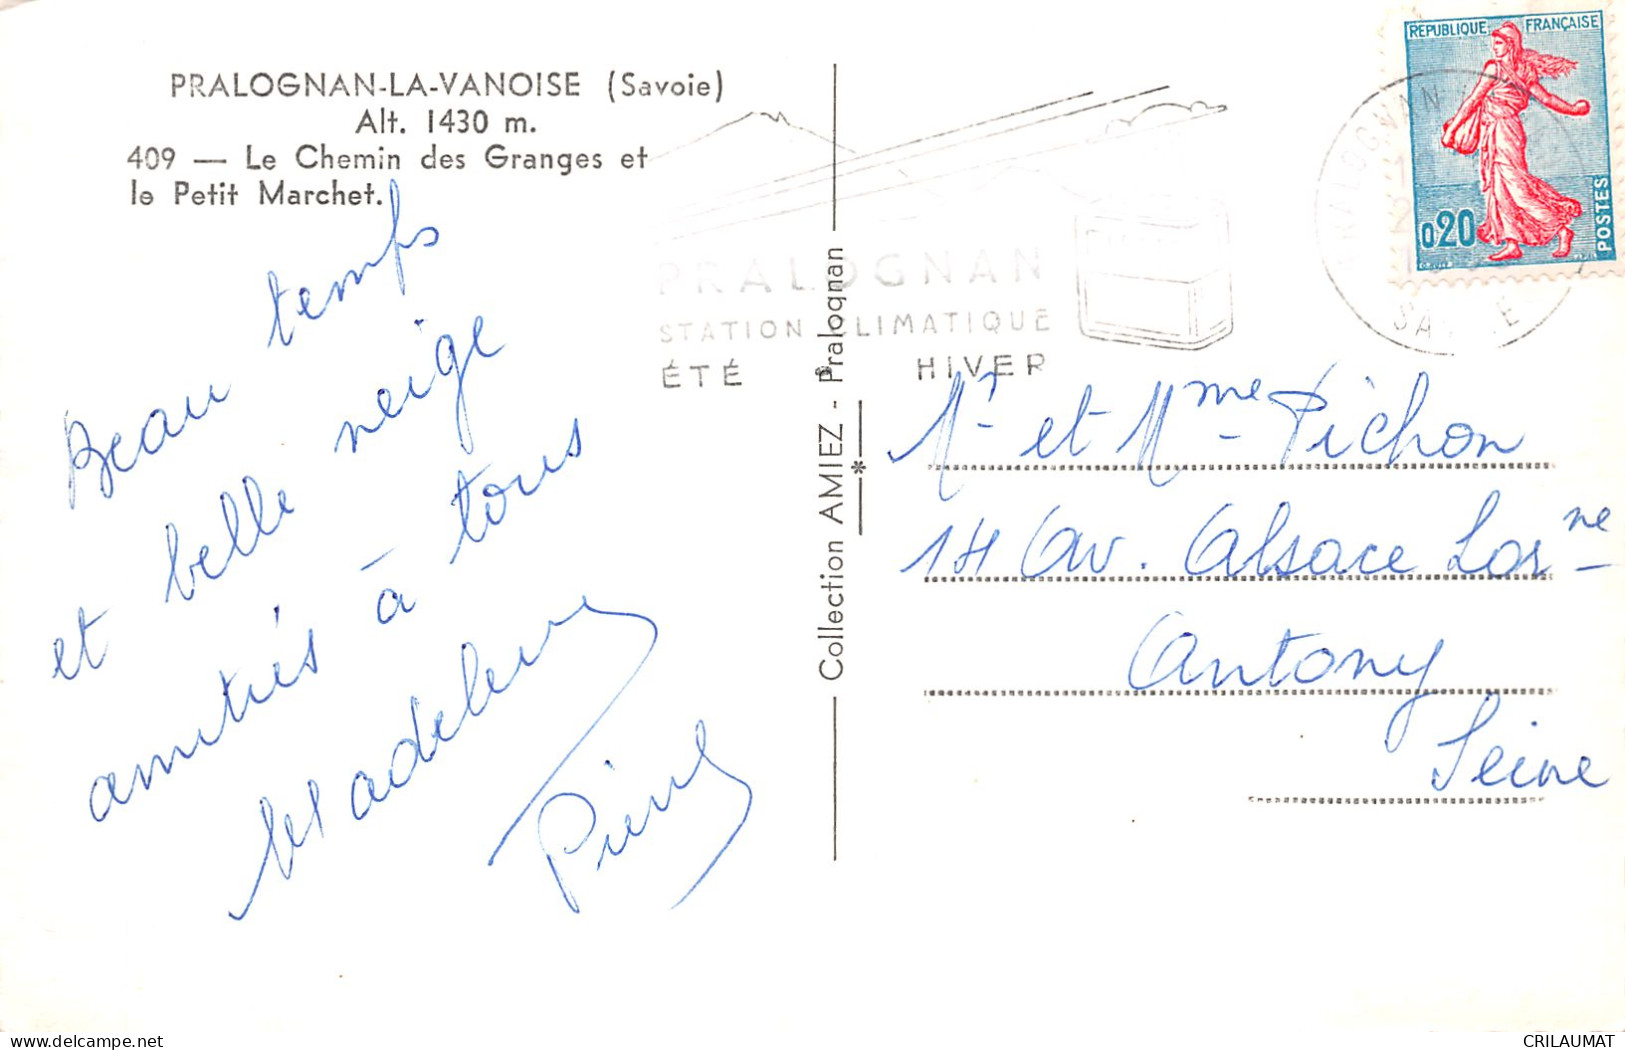 PRALOGNAN-LA-VANOISE (Savoie)
Alt. 1430 m.
409 — Le Chemin des Granges et
le Petit Marchet.
Beau temps
et belle neige
amitiés à tous
Pierre
Collection AMIEZ - Pralognan
PRALOGNAN
STATION CLIMATIQUE
ÉTÉ HIVER
REPUBLIQUE FRANÇAISE
0,20
POSTES
PRALOGNAN
Mr et Mme Pichon
14 Av. Alsace Lorne
Antony
Seine
delcampe.net
CRILAUMAT